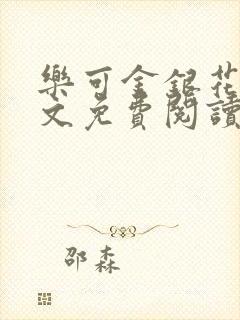 樂可金銀花
文免費閱讀
邵森